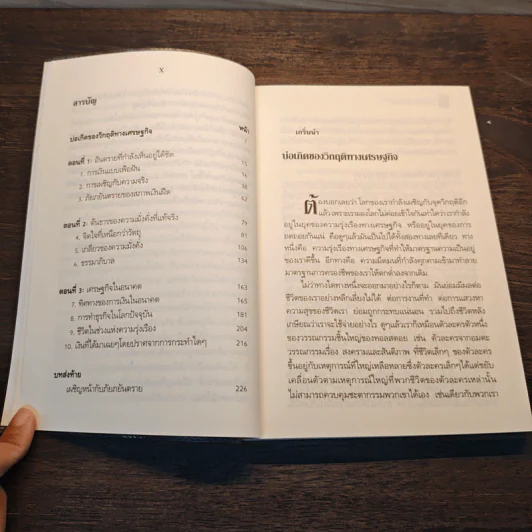 X
สารบัญ
บ่อเกิดของวิกฤติทางเศรษฐกิจ
หน้า
ตอนที่ 1: อันตรายที่กำลังเห็นอยู่ได้ชัด
1. การเงินแบบเพ้อฝัน
2. การเผชิญกับความจริง
3. ภัยเกิดอันตรายของสภาพเงินฝืด
15
42
52
ตอนที่ 2: ต้นธารของความมั่งคั่งที่แท้จริง 76
4. จิตใจที่เหนือกว่าวัตถุ 79
5. เกลียวของความมั่งคั่ง 91
6. ธรรมาภิบาล 134
ตอนที่ 3: เศรษฐกิจในอนาคต 163
7. ทิศทางของการเงินในอนาคต 165
8. การทำธุรกิจในโลกปัจจุบัน 181
9. ชีวิตในช่วงแห่งความรุ่งเรือง 204
10. เงินที่ได้มาเฉยๆโดยปราศจากการกระทำใดๆ 216
บทส่งท้าย
เผชิญหน้ากับภัยภยันตราย 226
เกริ่นนำ
บ่อเกิดของวิกฤติทางเศรษฐกิจ
ต้องบอกเลยว่า โลกของเรากำลังเผชิญกับจุดวิกฤติอีก
แล้ว เพราะเรามองโลกไม่ค่อยเข้าใจกันเท่าใดว่าเรากำลัง
อยู่ในยุคของความรุ่งเรืองทางเศรษฐกิจ หรืออยู่ในยุคของการ
ถดถอยกันแน่ คือดูๆแล้วมันเป็นไปได้ทั้งสองทางเลยทีเดียว ทาง
หนึ่งคือ ความรุ่งเรืองทางเศรษฐกิจที่ทำให้มาตรฐานความเป็นอยู่
ของเราดีขึ้น อีกทางคือ ความมืดมนที่กำลังคุกคามเข้ามาทำลาย
มาตรฐานการครองชีพของเราให้ตกต่ำลงจากเดิม
ไม่ว่าทางใดทางหนึ่งจะออกมาอย่างไรก็ตาม มันย่อมมีผลต่อ
ชีวิตของเราอย่างหลีกเลี่ยงไม่ได้ ต่อการงานที่ทำ ต่อการแสวงหา
ความสุขของชีวิตเรา ย่อมถูกกระทบแน่นอน รวมไปถึงชีวิตหลัง
เกษียณว่าเราจะใช้จ่ายอย่างไร ดูๆแล้วเราก็เหมือนตัวละครตัวหนึ่ง
ของวรรณกรรมชิ้นใหญ่ของทอลสตอย เช่น ตัวละครจากอมตะ
วรรณกรรมเรื่อง สงครามและสันติภาพ ที่ชีวิตเล็กๆ ของตัวละคร
ขึ้นอยู่กับเหตุการณ์ที่ใหญ่เหลือหลายซึ่งตัวละครเล็กๆได้แต่ขยับ
เคลื่อนตัวตามเหตุการณ์ใหญ่ที่พวกชีวิตของตัวละครเหล่านั้น
ไม่สามารถควบคุมชะตากรรมพวกเขาได้เอง เช่นเดียวกับพวกเรา